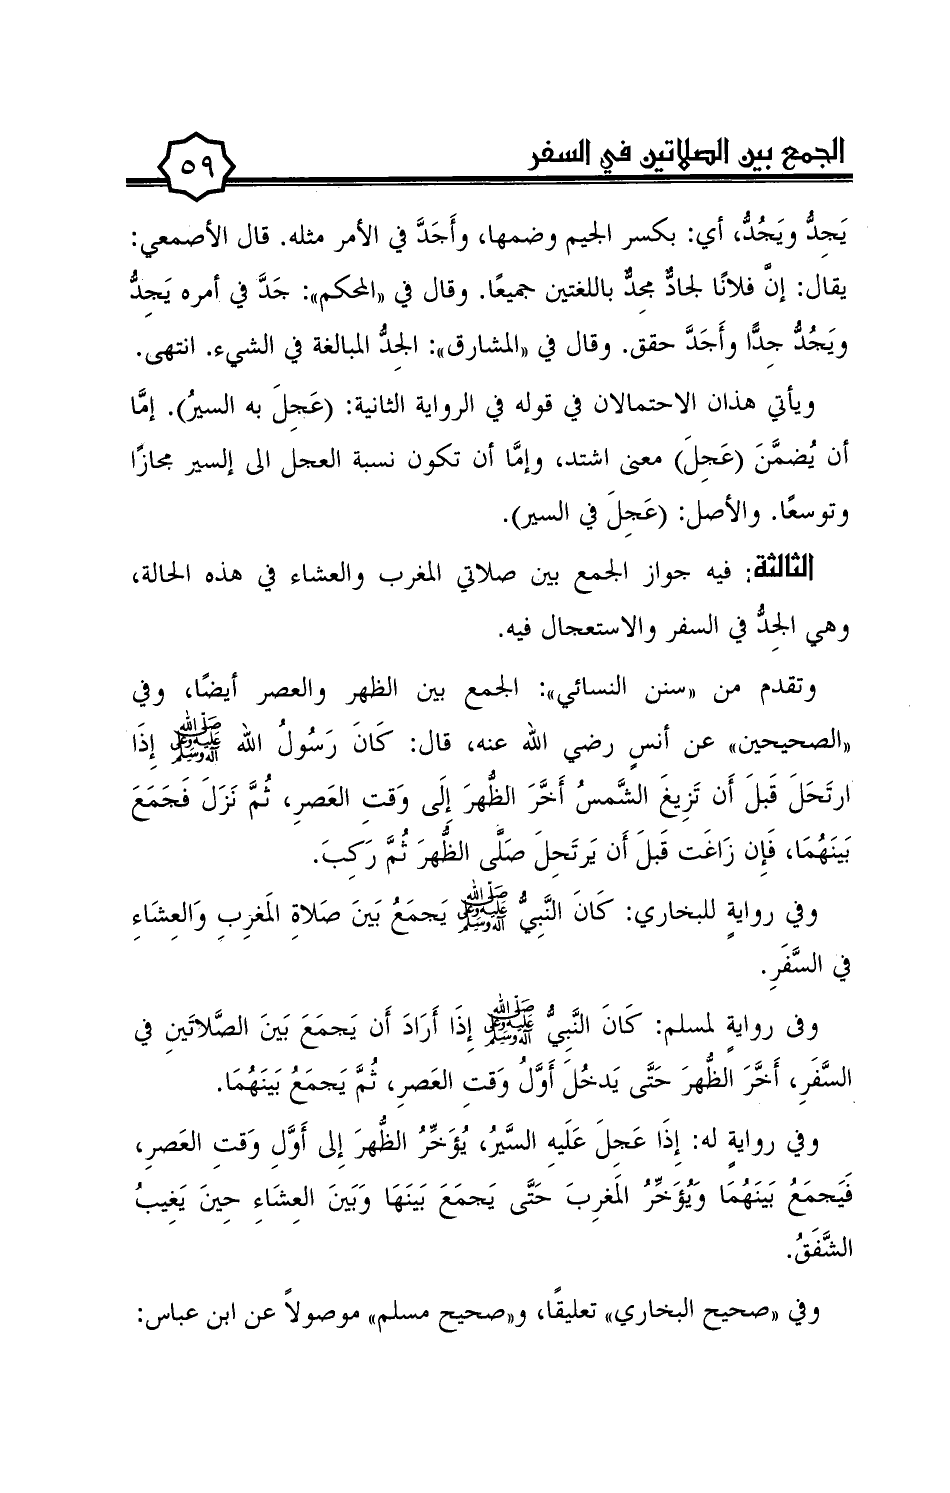 الجمع بين الصلاتين في السفر
٥٩
يَجِدُّ ويَجُدُّ، أي: بكسر الجيم وضمها، وأَجَدَّ في الأمر مثله. قال الأصمعي:
يقال: إنَّ فلانًا لجادٌّ مجِدٌّ باللغتين جميعًا. وقال في «المحكم»: جَدَّ في أمره يَجِدُّ
ويَجُدُّ جِدًّا وأَجَدَّ حقق. وقال في «المشارق»: الجِدُّ المبالغة في الشيء. انتهى.
ويأتي هذان الاحتمالان في قوله في الرواية الثانية: (عَجِلَ به السيرُ). إمَّا
أن يُضمَّنَ (عَجِلَ) معنى اشتد، وإمَّا أن تكون نسبة العجل الى إلسير مجازًا
وتوسعًا. والأصل: (عَجِلَ في السير).
الثالثة: فيه جواز الجمع بين صلاتي المغرب والعشاء في هذه الحالة،
وهي الجِدُّ في السفر والاستعجال فيه.
وتقدم من «سنن النسائي»: الجمع بين الظهر والعصر أيضًا، وفي
«الصحيحين» عن أنسٍ رضي الله عنه، قال: كَانَ رَسُولُ الله ﷺ إذَا
ارتَحَلَ قَبلَ أن تَزِيغَ الشَّمسُ أخَّرَ الظُّهرَ إلَى وَقتِ العَصرِ، ثُمَّ نَزَلَ فَجَمَعَ
بَينَهُمَا، فَإن زَاغَت قَبلَ أن يَرتَحِلَ صَلَّى الظُّهرَ ثُمَّ رَكِبَ.
وفي روايةٍ للبخاري: كَانَ النَّبِيُّ ﷺ يَجمَعُ بَينَ صَلاةِ المَغرِبِ وَالعِشَاءِ
في السَّفَرِ.
وفى روايةٍ لمسلم: كَانَ النَّبِيُّ ﷺ إذَا أَرَادَ أن يَجمَعَ بَينَ الصَّلاتَينِ في
السَّفَرِ، أخَّرَ الظُّهرَ حَتَّى يَدخُلَ أَوَّلُ وَقتِ العَصرِ، ثُمَّ يَجمَعُ بَينَهُمَا.
وفي روايةٍ له: إذَا عَجِلَ عَلَيهِ السَّيرُ، يُؤَخِّرُ الظُّهرَ إلى أَوَّلِ وَقتِ العَصرِ،
فَيَجمَعُ بَينَهُمَا وَيُؤَخِّرُ المَغرِبَ حَتَّى يَجمَعَ بَينَهَا وَبَينَ العِشَاءِ حِينَ يَغِيبُ
الشَّفَقُ.
وفي «صحيح البخاري» تعليقًا، و«صحيح مسلم» موصولاً عن ابن عباس: